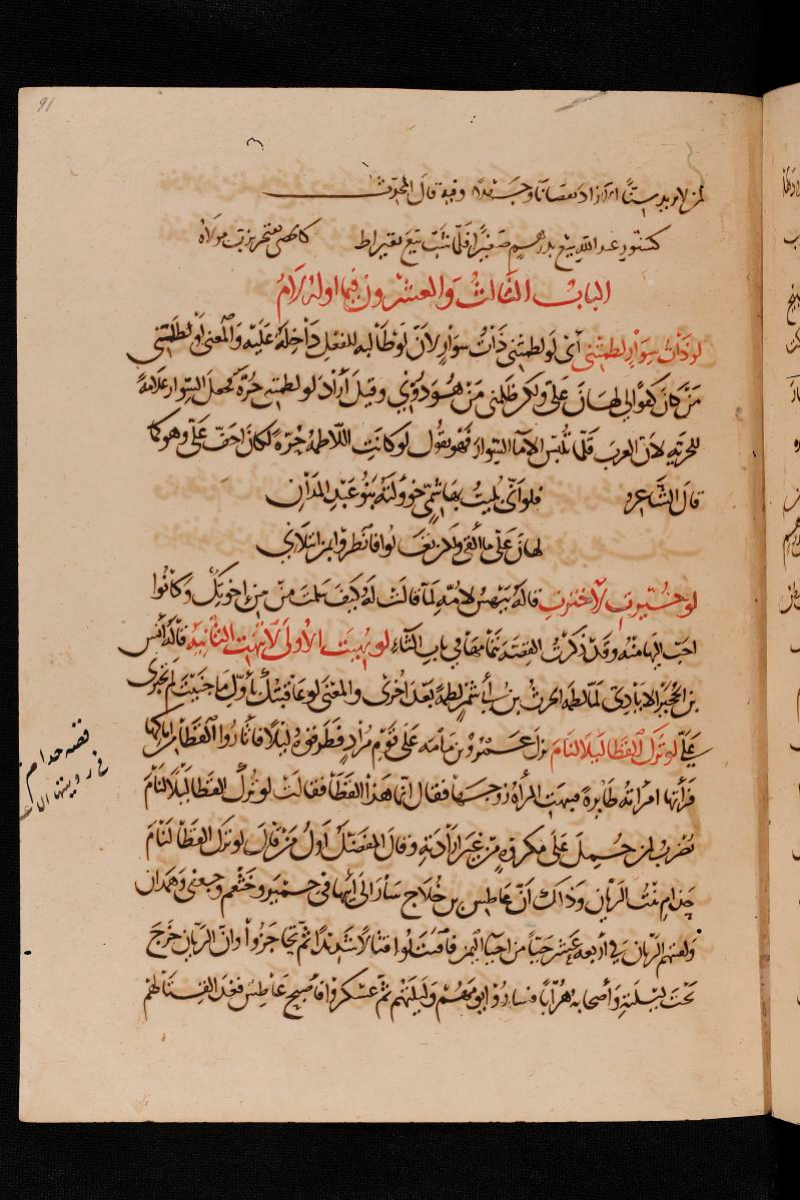 91
لمن لا يزيد سنا الا زاد نقصانا وجهلا وفيه قال المحدث
كسنور عبد الله بيع بدرهم صغيرا فلما شب بيع بقيراط
الباب الثالث والعشرون فيما اوله لام
لو ذات سوار لطمتني اي لو لطمتني ذات سوار لان لو طالبة للفعل داخلة عليه والمعنى لو لطمتني
من كان كفوا لي لهان علي ولكن ظلمني من هو دوني وقيل اراد لو لطمتني حرة فجعل السوار علامة
للحرية لان العرب قلما تلبس الاماء السوار فهو يقول لو كانت اللاطمة حرة لكان اخف علي وهو كما
قال الشاعر فلو اني بليت بهاشمي خوولته بنو عبد المدان
لهان علي ما القى ولكن تعالوا فانظروا بمن ابتلاني
لو خيرت لاخترت قاله بيهس لامه لما قالت له كيف سلمت من بين اخوتك وكانوا
احب اليها منه وقد ذكرت القصة بتمامها في باب الثاء لو نهيت الاولى لانتهت الثانية قاله انس
بن الحجير الايادي لما لطمه الحرث بن ابي شمر لطمة بعد اخرى والمعنى لو عاقبتك باول ما جنيت لم تجترئ
علي لو ترك القطا ليلا لنام نزل عمرو بن مامة على قوم من مراد فطرقوه ليلا فاثاروا القطا من اماكنها
فراتها امراته طايرة فنبهت المراة زوجها فقال انما هذا القطا فقالت لو ترك القطا ليلا لنام
يضرب لمن حمل على مكروه من غير ارادته وقال المفضل اول من قال لو ترك القطا لنام
حذام بنت الريان وذاك ان عاطس بن خلاج سار الى ابيها في حمير وخثعم وجعفي وهمدان
ولقيهم الريان في اربعة عشر حيا من احياء اليمن فاقتتلوا قتالا شديدا ثم تحاجزوا وان الريان خرج
تحت ليلته واصحابه هرابا فساروا يومهم وليلتهم ثم عسكروا فاصبح عاطس فغدا لقتالهم
قصة حذام